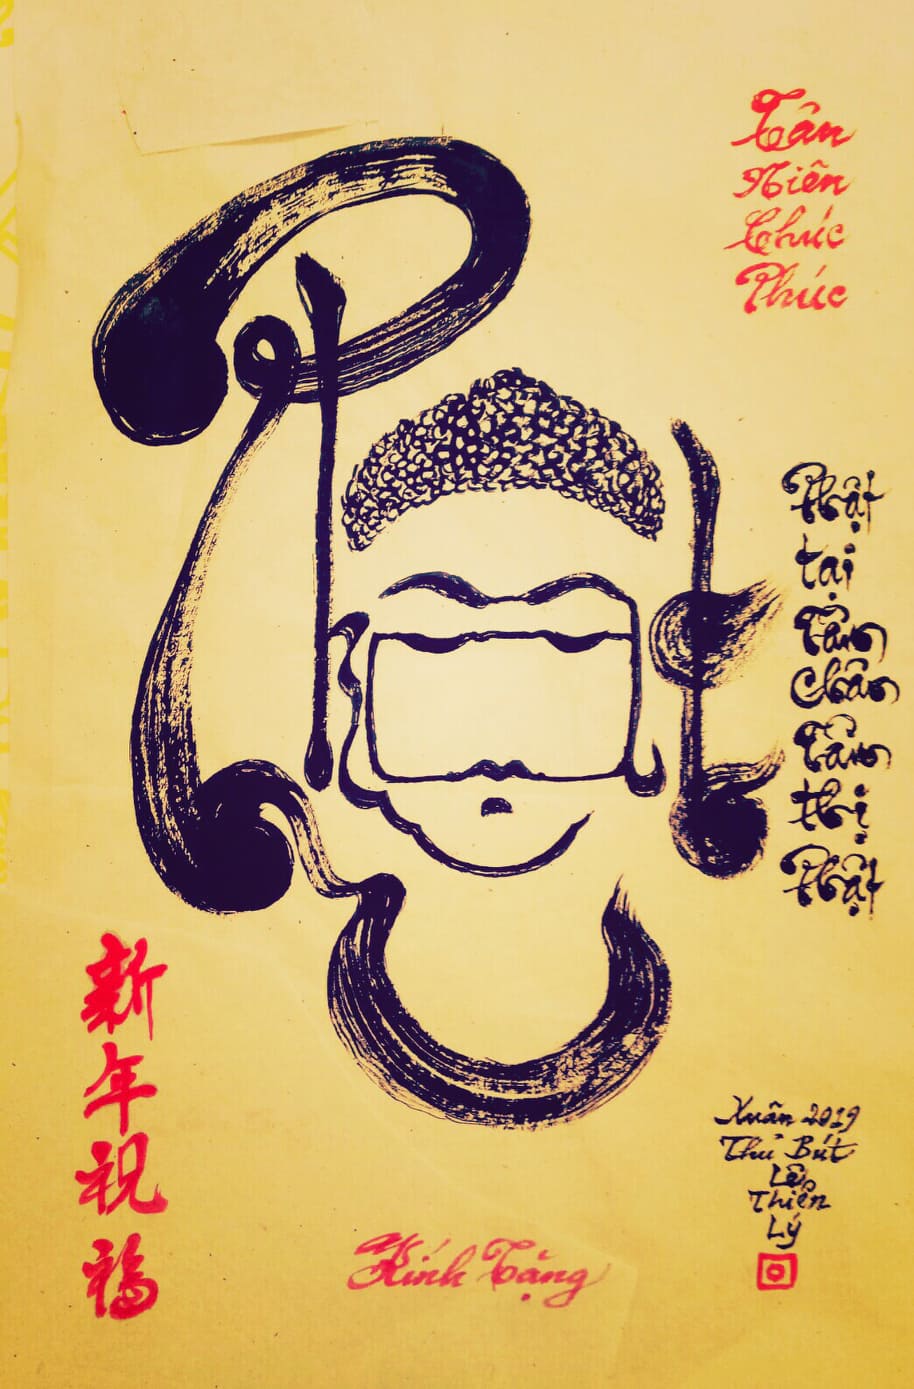 Tân
Niên
Chúc
Phúc
Phật
Phật
tại
Tâm
Chân
Tâm
thị
Phật
新
年
祝
福
Xuân 2019
Thủ Bút
Lê
Thiên
Lý
Kính Tặng